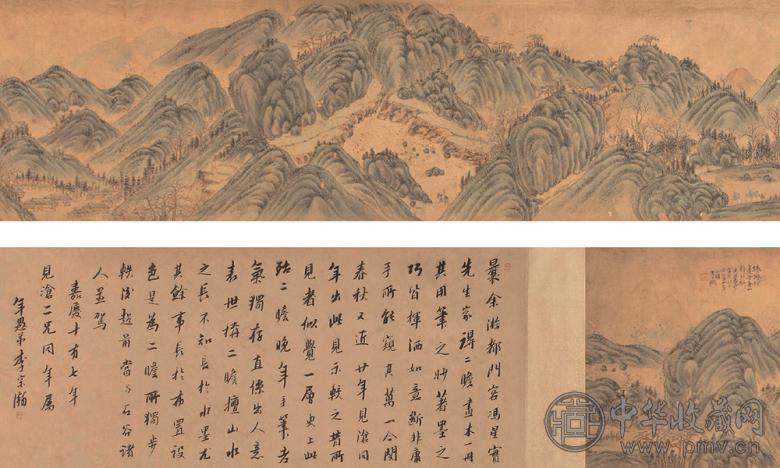 曩余游都門宮馮星實
先生家得二瞻畫本一冊
其用筆之妙著墨之
巧皆揮洒如意斷非庸
手所能窺其萬一今閱
春秋又近廿年見滄同
年出此見示較之昔所
見者似覺一層更上此
殆二瞻晚年手筆古
氣獨存直係出人意
表世稱二瞻擅山水
之長不知長於水墨尤
其餘事長於布置設
色是為二瞻所獨步
軼後超前當与石谷諸
人並駕
嘉慶十有七年
見滄二兄同年屬
年愚弟李宗瀚
中华收藏网
www.pmv.cn